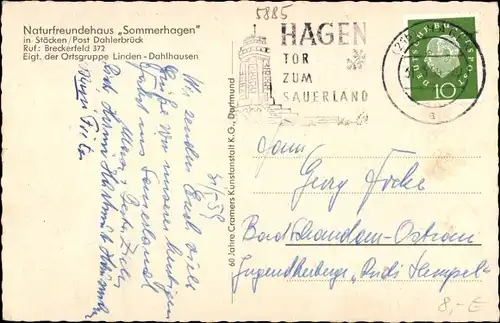 Naturfreundehaus „Sommerhagen"
in Stöcken/Post Dahlerbrück
Ruf: Breckerfeld 372
Eigt. der Ortsgruppe Linden-Dahlhausen
5885
HAGEN
TOR
ZUM
SAUERLAND
DEUTSCHE BUNDESPOST
10
60 Jahre Cramers Kunstanstalt K.G., Dortmund
Wir senden Euch viele
Grüße von unserer heutigen
Fahrt ins Sauerland
Fam.
Georg
Bad Schandau-Ostrau
Jugendherberge „Rudi Hempel"
8,- €